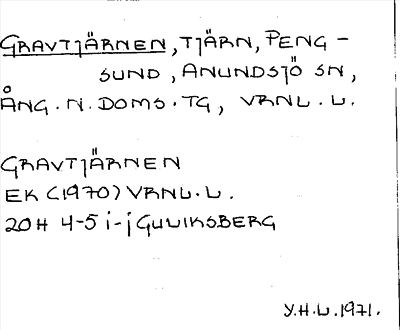 GRAVTJÄRNEN, TJÄRN, PENG-
SUND, ANUNDSJÖ SN,
ÅNG. N. DOMS. TG, VRNL. L.
GRAVTJÄRNEN
EK (1970) VRNL. L.
20H 4-5 i-j GULIKSBERG
Y.H.L. 1971.